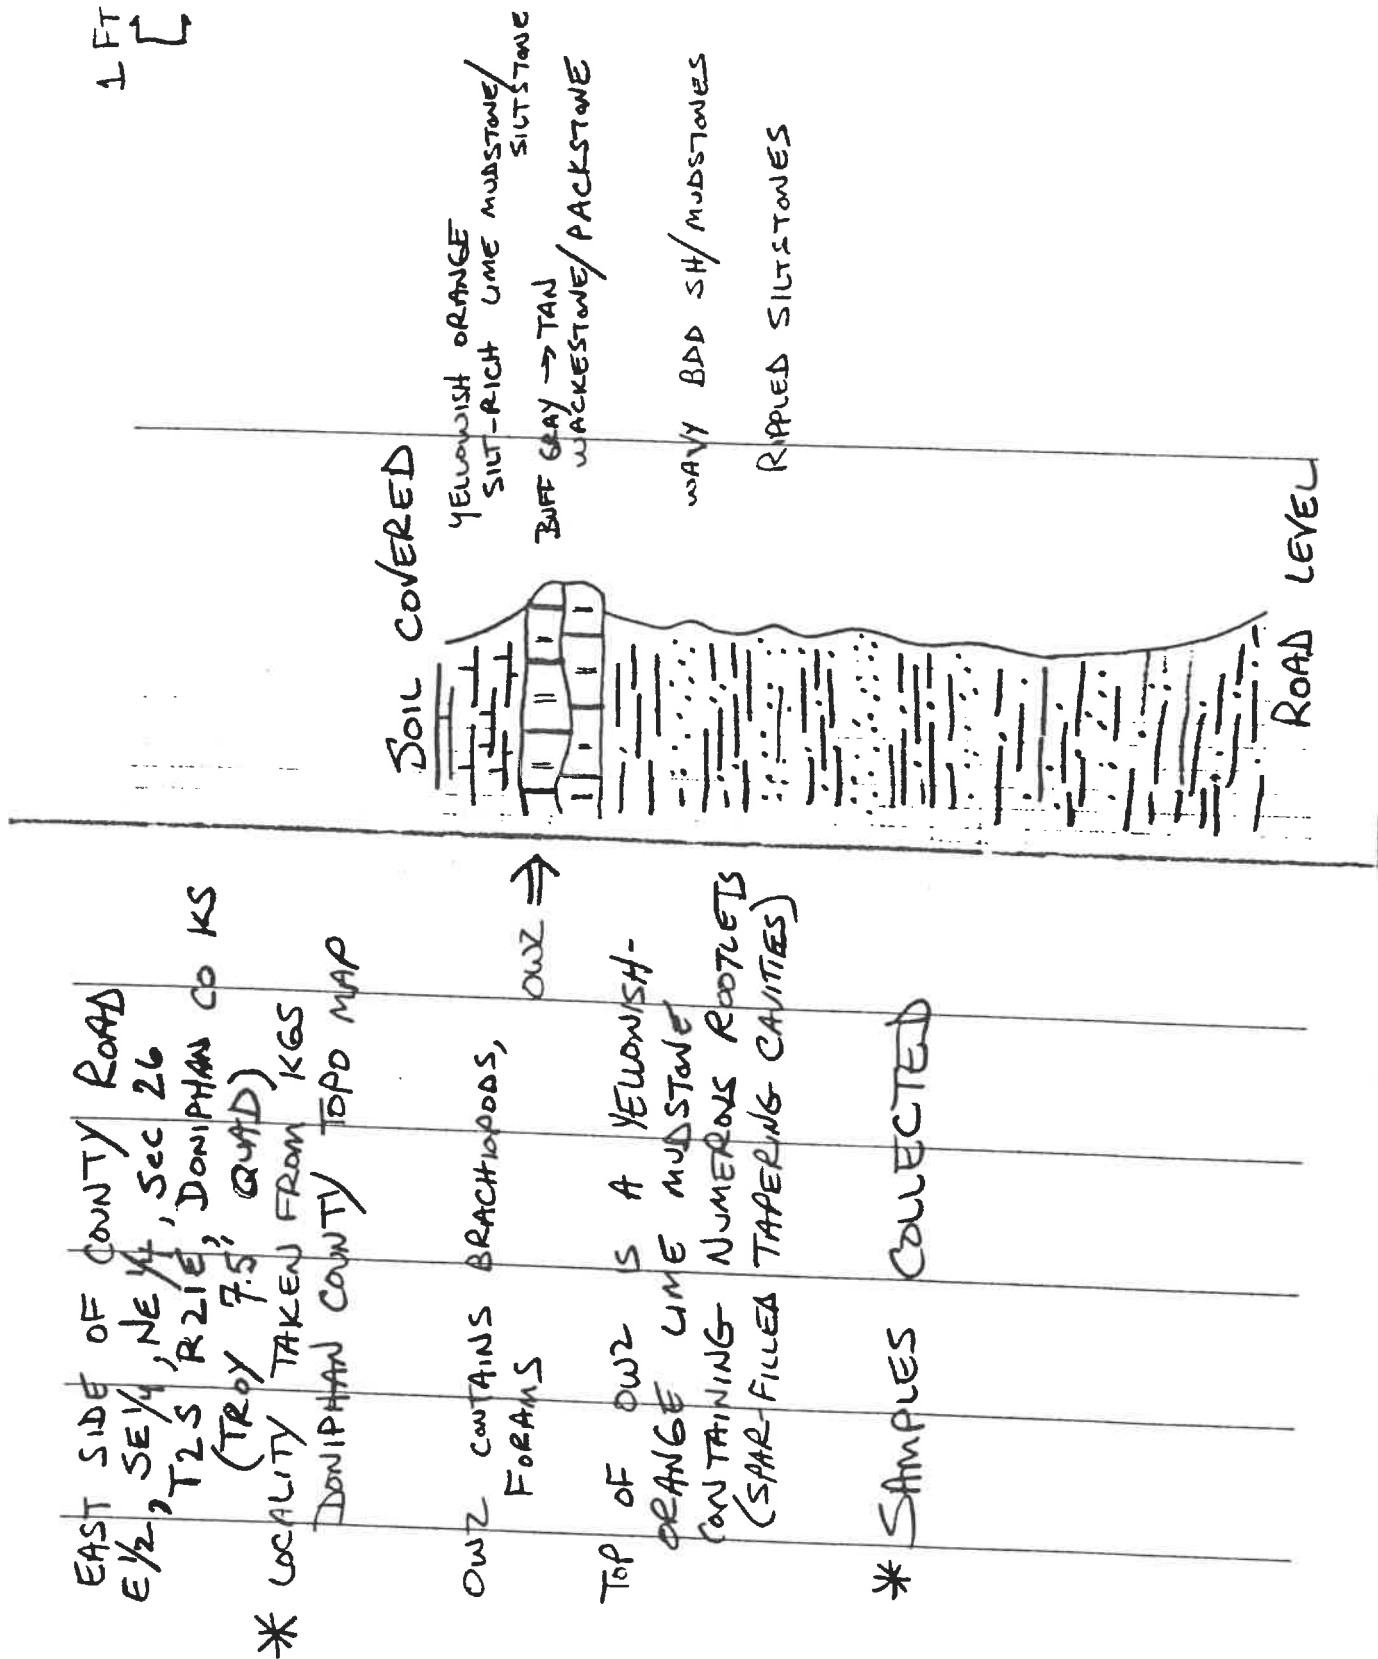 EAST SIDE OF COUNTY ROAD
E½, SE¼, NE¼, SEC 26
T2S R21E, DONIPHAN CO KS
(TROY 7.5' QUAD)
* LOCALITY TAKEN FROM KGS
DONIPHAN COUNTY TOPO MAP
OWZ CONTAINS BRACHIOPODS,
FORAMS
OWZ ⇒
TOP OF OWZ IS A YELLOWISH-
ORANGE LIME MUDSTONE
CONTAINING NUMEROUS ROOTLETS
(SPAR-FILLED TAPERING CAVITIES)
* SAMPLES COLLECTED
1 FT
SOIL COVERED
YELLOWISH ORANGE
SILT-RICH LIME MUDSTONE/
SILTSTONE
BUFF GRAY → TAN
WACKESTONE/PACKSTONE
WAVY BDD SH/MUDSTONES
RIPPLED SILTSTONES
ROAD LEVEL